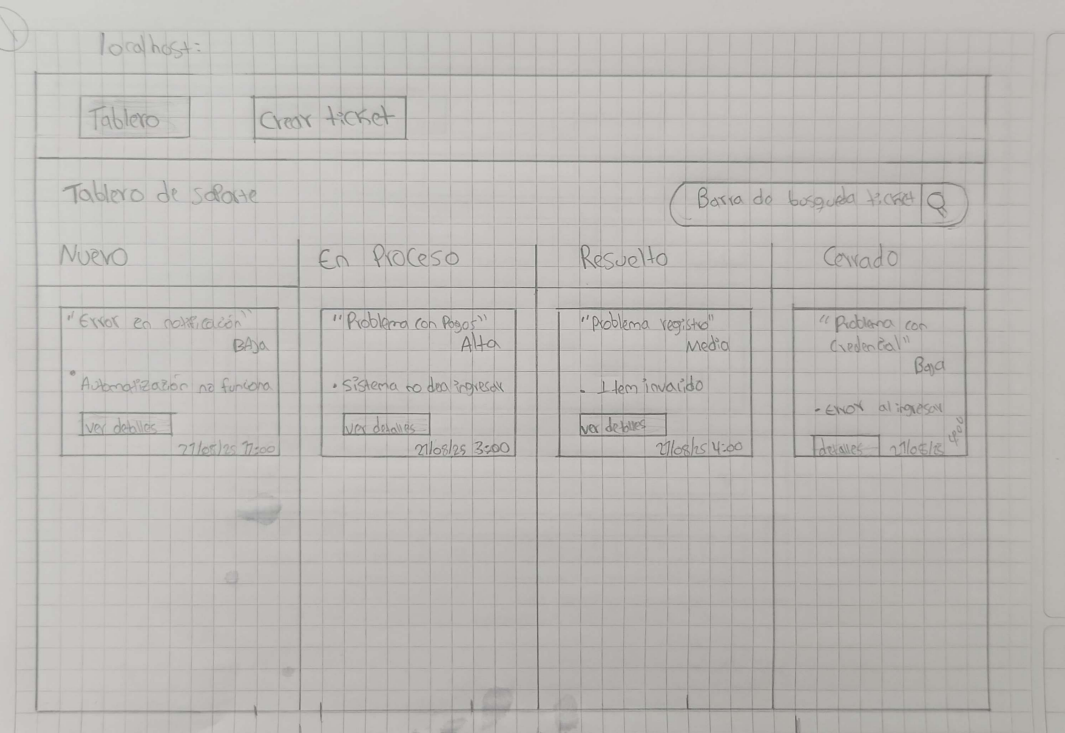 localhost:
Tablero
Crear ticket
Tablero de soporte
Barra de busqueda ticket
Nuevo
En Proceso
Resuelto
Cerrado
"Error en notificación"
BAJa
• Automatización no funciona
ver detalles
27/08/25 11:00
"Problema con Pagos"
Alta
• Sistema no deja ingresar
ver detalles
27/08/25 3:00
"Problema registro"
Medio
- Item invalido
ver detalles
27/08/25 4:00
"Problema con
Credencial"
Baja
- Error al ingresar
detalles
27/08/25 4:00